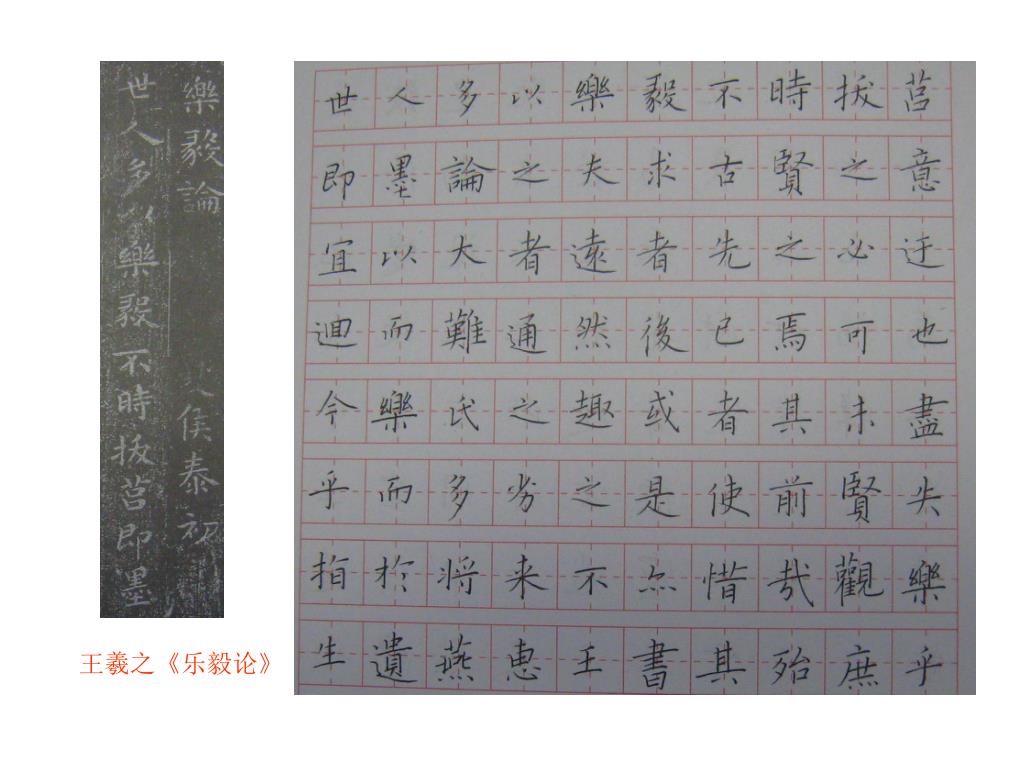 樂毅論 侯泰初
世人多以樂毅不時拔莒即墨
王羲之《乐毅论》
世人多以樂毅不時拔莒
即墨論之夫求古賢之意
宜以大者遠者先之必迂
迴而難通然後已焉可也
今樂氏之趣或者其未盡
乎而多劣之是使前賢失
指於將来不亦惜哉觀樂
生遺燕惠王書其殆庶乎